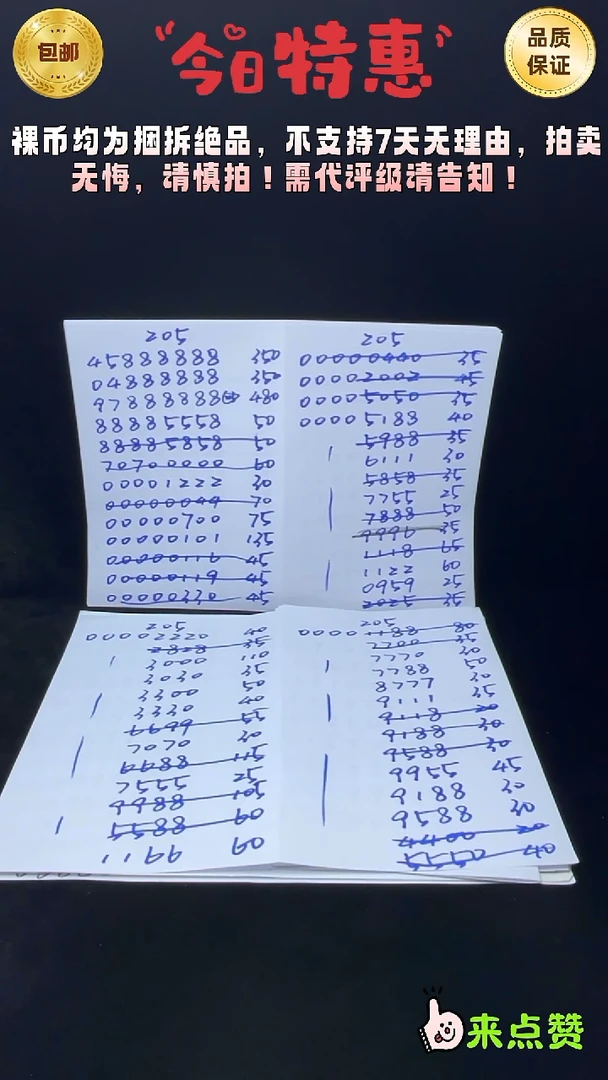 包邮
今日特惠
品质
保证
裸币均为捆拆绝品，不支持7天无理由，拍卖
无悔，请慎拍！需代评级请告知！
205
45888888 350
04888888 350
97888888 480
88885558 50
88885858 50
70700000 60
00001222 30
00000044 70
00000700 75
00000101 135
00000116 45
00000119 45
00000330 45
205
00000440 35
00002002 45
00005050 35
00005183 40
5988 35
6111 30
5858 35
7755 25
7888 50
9996 35
1118 65
1122 60
0959 25
2025 35
205
00002220 40
2828 35
3000 110
3030 35
3300 50
3330 40
6699 55
7070 30
6688 115
7555 25
9988 105
5588 60
9911 60
205
00001188 80
7700 35
7770 30
7788 50
8777 30
9111 35
9118 20
9188 30
9588 30
9955 45
9188 30
9588 30
4400 20
5550 40
来点赞